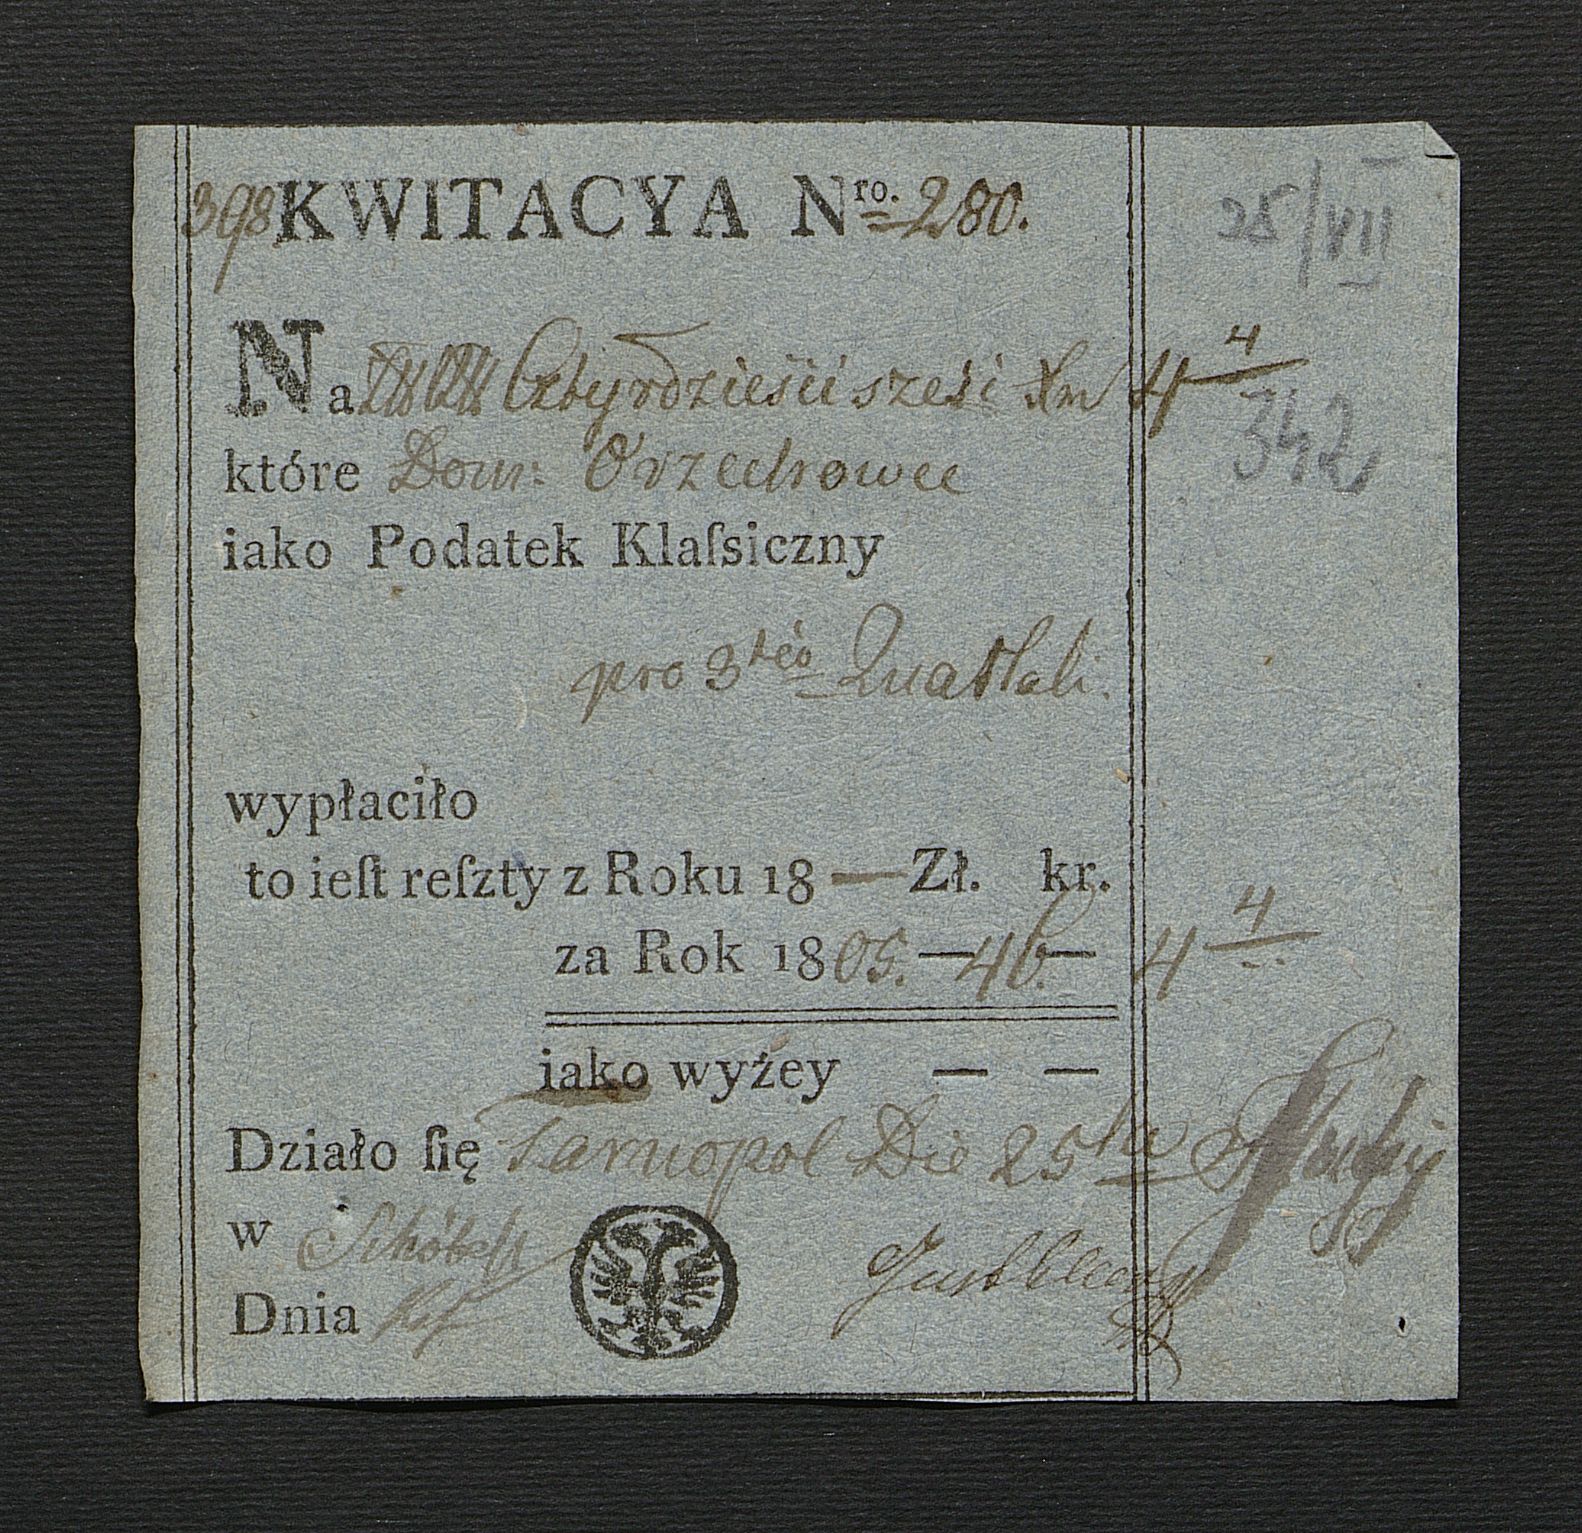 398 KWITACYA Nro. 280.
25/VII
Na Cztyrdzieści sześi Xm 4 4
które Dom: Orzechowce
342
iako Podatek Klaſsiczny
pro 3tio Quartali.
wypłaciło
to ieſt reſzty z Roku 18 — Zł. kr.
za Rok 1805. — 46 — 4 4
iako wyżey — —
Działo ſię Tarnopol Die 25te
w
Dnia